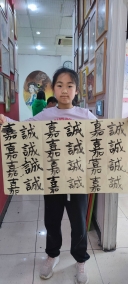 嘉 誠 嘉 誠 嘉 誠
嘉 誠 嘉 誠 嘉 誠
嘉 誠 嘉 誠 嘉 誠
嘉 誠 嘉 誠 嘉 誠